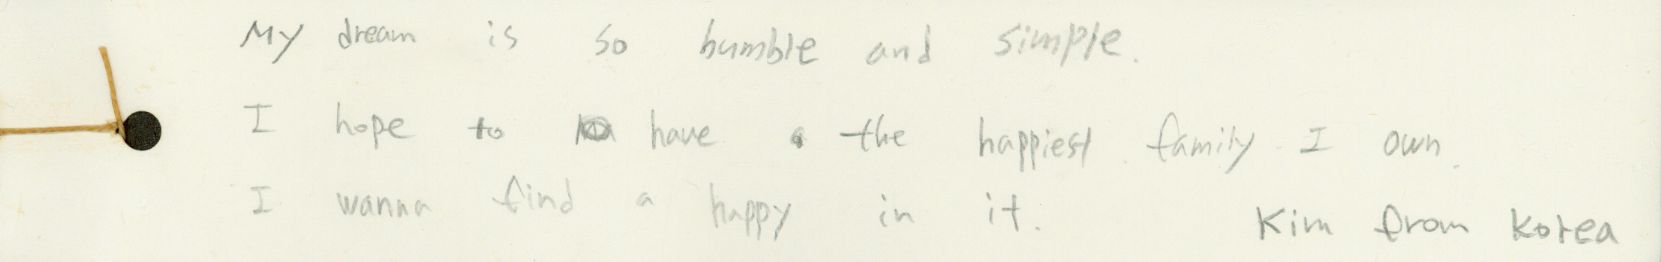 My dream is so humble and simple.
I hope to have the happiest family I own.
I wanna find a happy in it. Kim from Korea